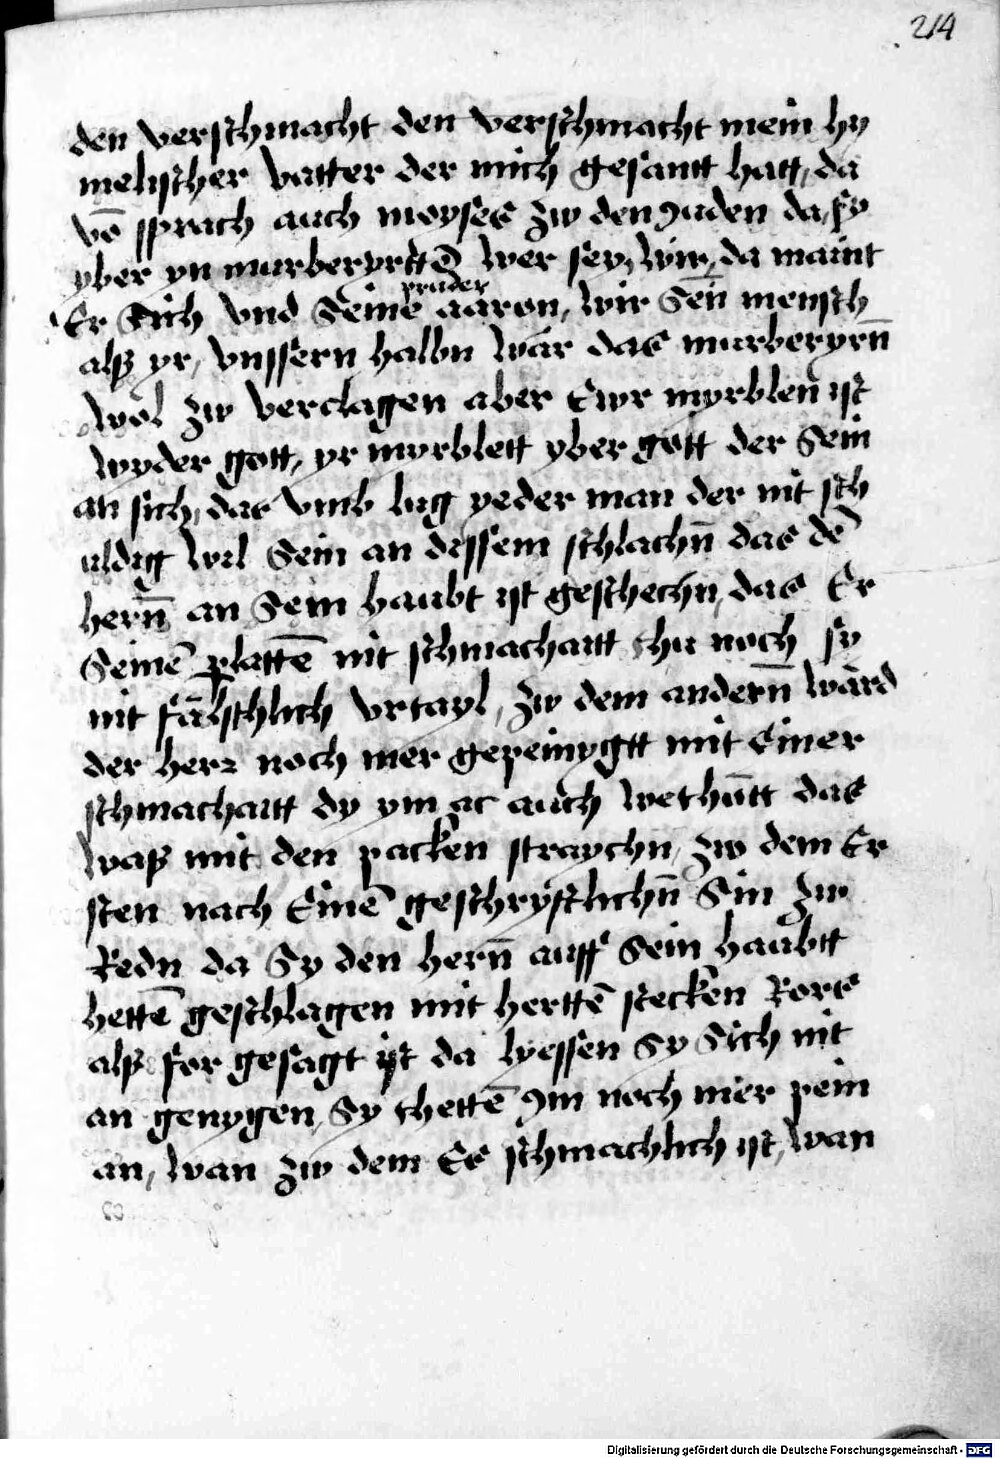 214
den verschmacht den verschmacht mein hy
melischer vatter der mich gesantt hatt, da
vō sprach auch moyses zw den Juden da sy
yber yn murberyrttē wer sey wir, da maint
pruder
Er Sich vnd Seinē aaron, wir Sēn mensch
alß yr, vnssern halbn wär das murberyrn̄
wol zw verclagen aber Ewr myrblen ist
wyder gott, yr myrblett yber gott der Sein
an sich, das vmb lug yeder man der nit sch
uldig wil Sein an dissem schlachn̄ das dē
hern̄ an Sein haubt yst geschechn, das Er
Seinē plattē nit schmachaitt thu noch sy
nit fälschlich vrtayl, zw dem andern̄ ward
der herr noch mer gepeinygtt mit Einer
schmachaitt dy ym ac auch wethūtt das
waß mit den packen straychn, zw dem Er
sten nach Einē geschryftlichn̄ Sin zw
Redn da Sy den hern̄ auff Sein haubtt
hettē geschlagen mit herttē stecken Rors
alß for gesagt yst da lyessen Sy Sich nit
an genygen, Sy thettē Jm noch mer pein
an, wan zw dem Es schmachlich yst, wan
Digitalisierung gefördert durch die Deutsche Forschungsgemeinschaft - DFG